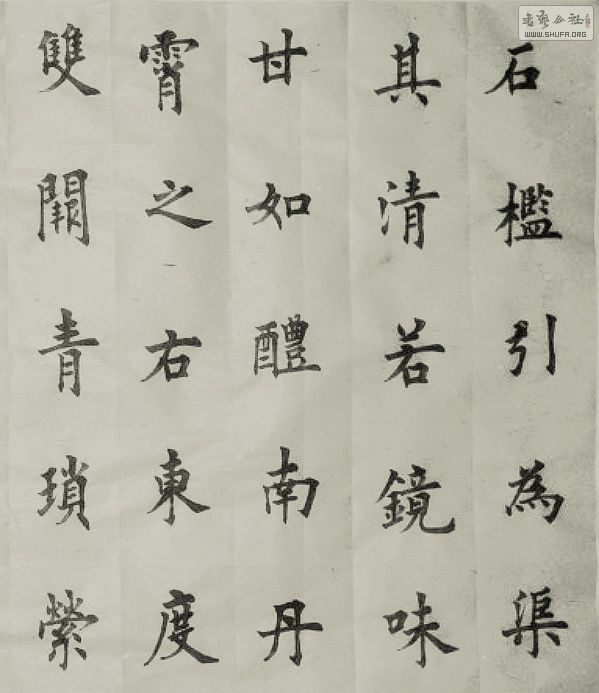 石檻引為渠
其清若鏡味
甘如醴南丹
霄之右東度
雙闕青瑣縈
書藝公社
WWW.SHUFA.ORG